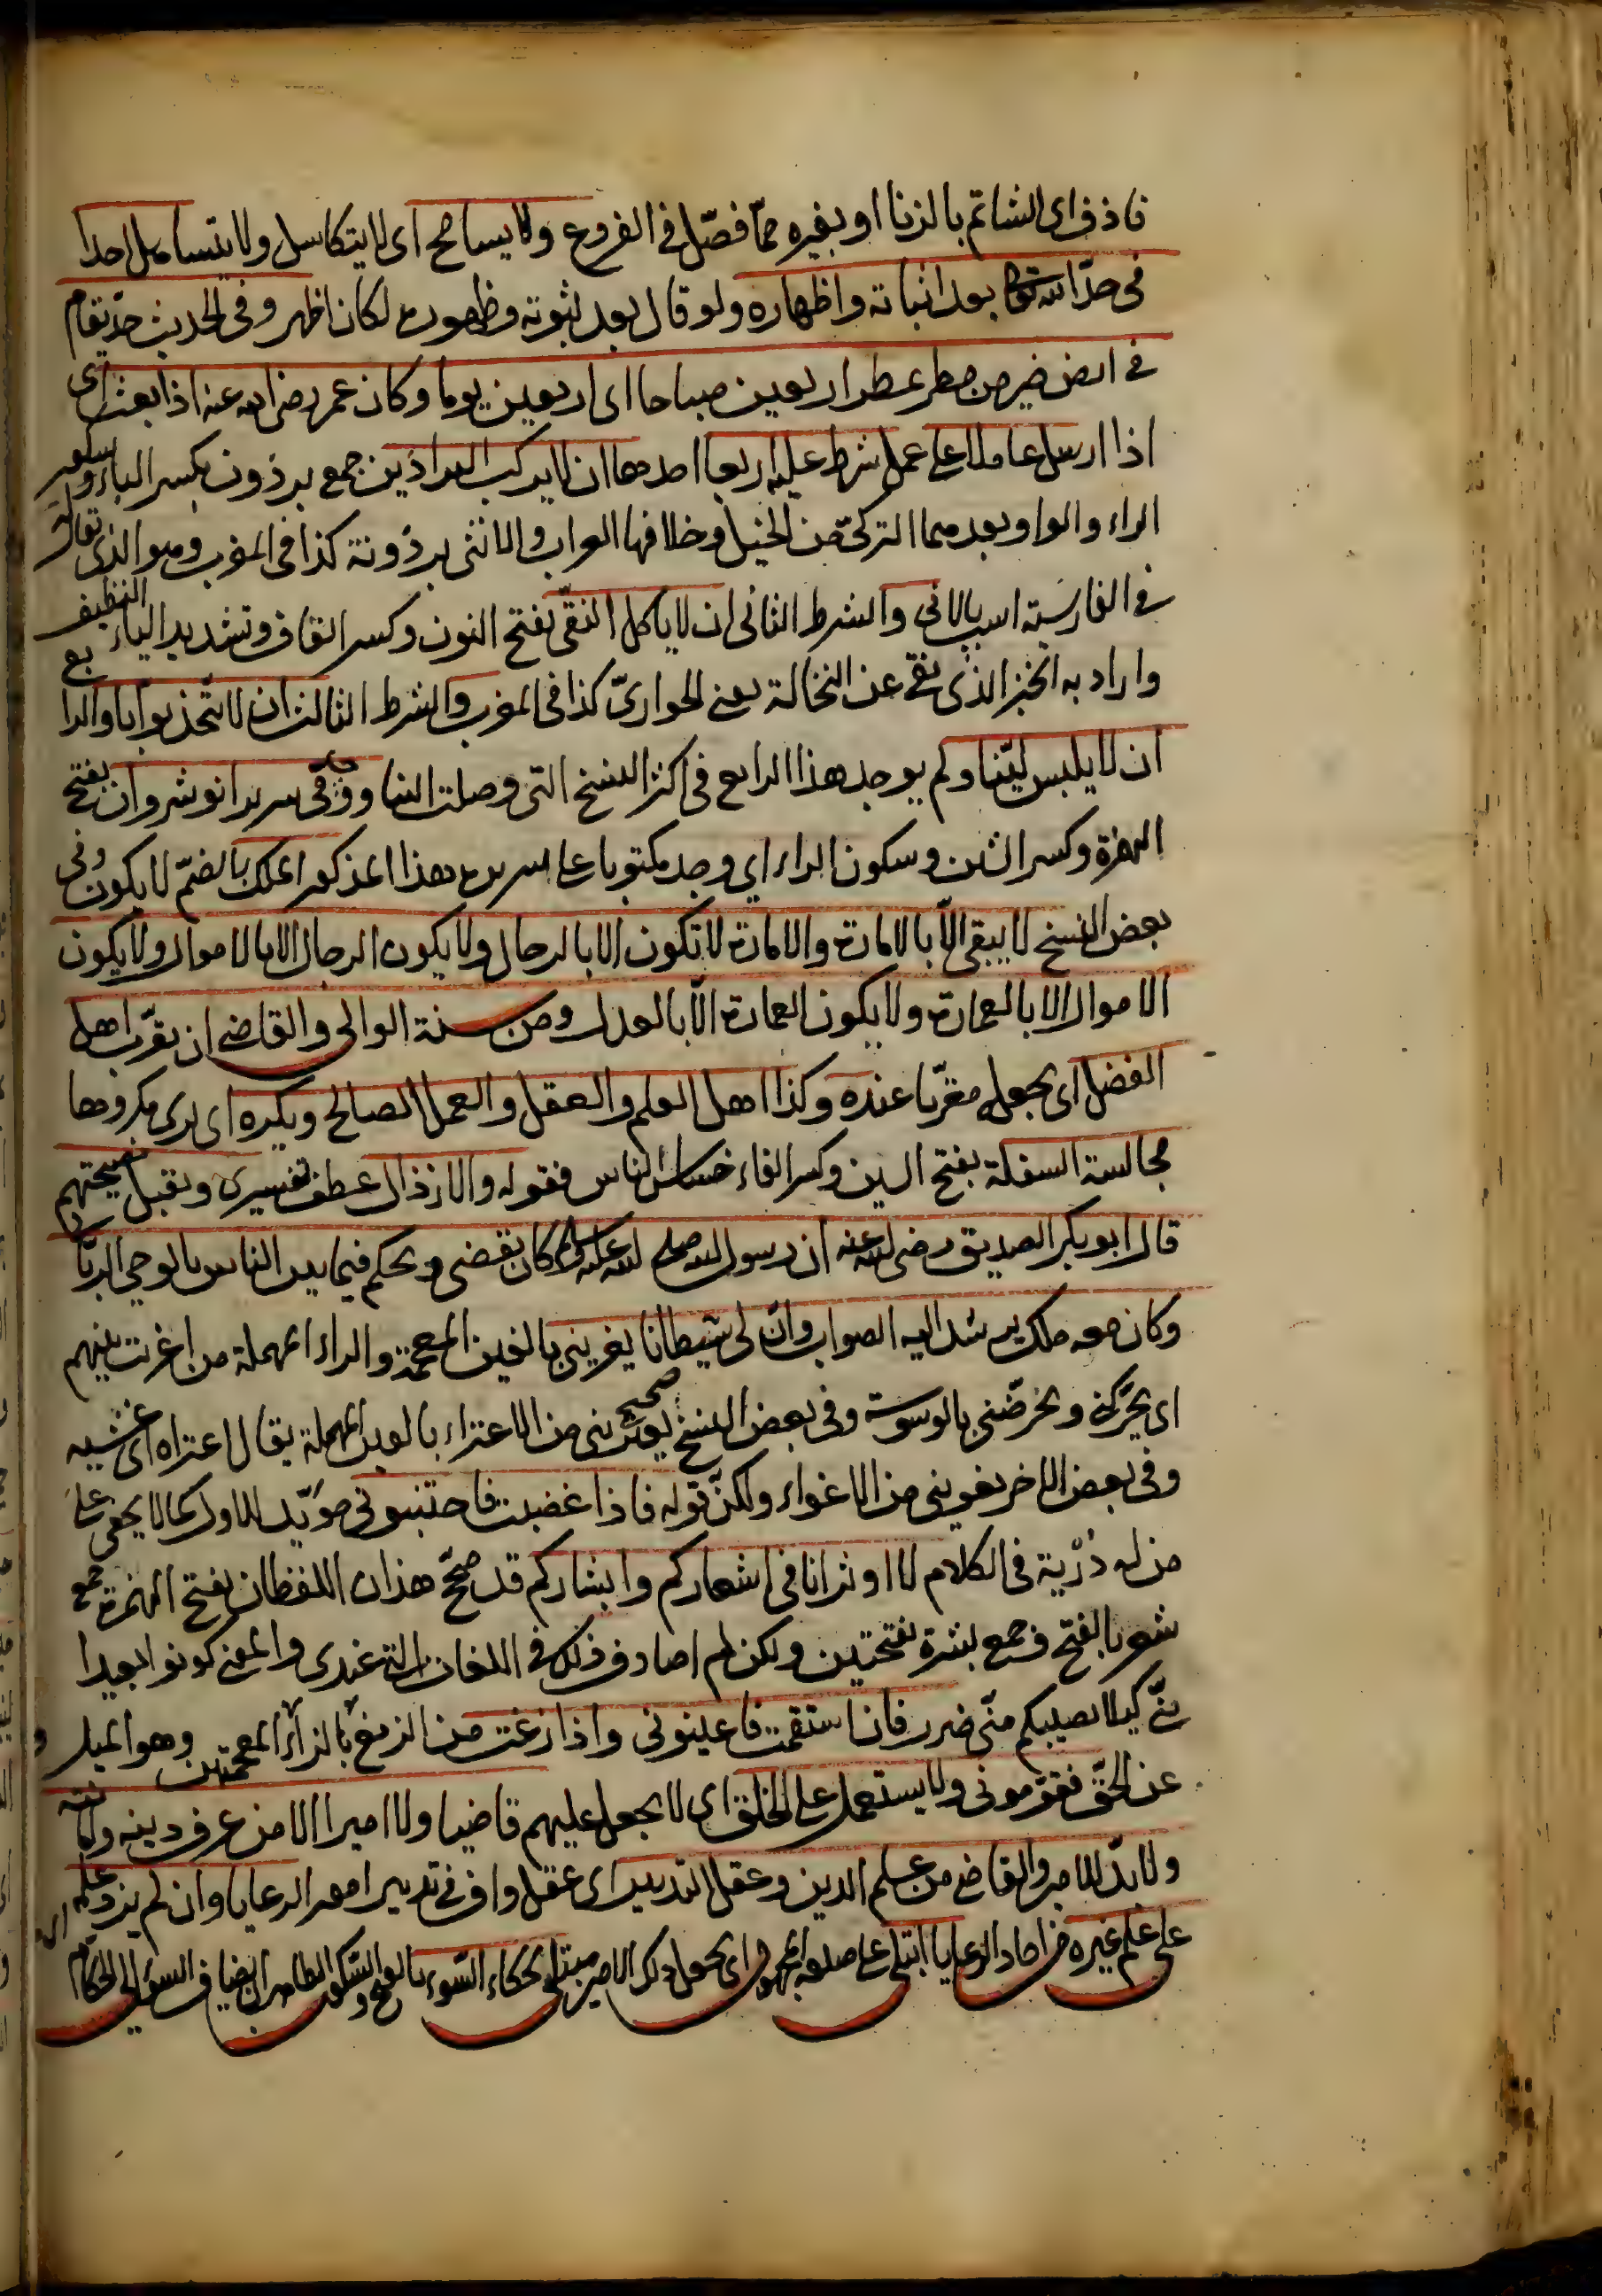 قاذف اى الشاتم بالزنا او بغيره مما فصّل فى الفروع ولا يسامح اى لا يتكاسل ولا يتساهل احدا
فى حدّ الله تعالى بعد اثباته واظهاره ولو قال بعد ثبوته وظهوره لكان اظهر وفى الحديث حدّ يقام
فى ارض خير من مطر عطر اربعين صباحا اى اربعين يوما وكان عمر رضى الله عنه اذا بعث اى
اذا ارسل عاملا على عمل شرط عليه اربعا احدها ان لا يركب البراذين جمع برذون بكسر الباء وسكون
الراء والواو بعدهما التركىّ من الخيل وخلافها العراب والانثى برذونة كذا فى المغرب وهو الذى يقال له
فى الفارسية اسب بالانى والشرط الثانى ان لا ياكل النقىّ بفتح النون وكسر القاف وتشديد الياء النظيف
واراد به الخبز الذى نقى عن النخالة يعنى الحوارىّ كذا فى المغرب والشرط الثالث ان لا يتخذ بوابا والرابع
ان لا يلبس ليّنا ولم يوجد هذا الرابع فى اكثر النسخ التى وصلت الينا ووجد فى سرير انوشروان بفتح
الهمزة وكسر الشين وسكون الراء اي وجد مكتوبا على سرير هذا المذكور الملك بالضمّ لا يكون وفى
بعض النسخ لا يبقى الّا بالامارة والامارة لا تكون الا بالرجال ولا يكون الرجال الا بالاموال ولا يكون
الاموال الا بالعمارة ولا يكون العمارة الّا بالعدل ومن سنة الوالى والقاضى ان يقرّب اهل
الفضل اى يجعله مقرّبا عنده وكذا اهل العلم والعقل والعمل الصالح ويكره اى يرى مكروها
مجالسة السفلة بفتح السين وكسر الفاء خساس الناس فقوله والارذال عطف تفسيرى ويقبل نصيحتهم
قال ابو بكر الصديق رضى الله عنه ان رسول الله صلى الله عليه وسلم كان يقضى ويحكم فيما بين الناس بالوحي الربّانى
وكان معه ملك يرشد اليه الصواب وانّ لى شيطانا يغرينى بالغين المعجمة والراء المهملة من اغريت بينهم
اى يحرّكنى ويحرّضنى بالوسوسة وفى بعض النسخ يعترينى صحيح من الاعتراء بالعين المهملة يقال اعتراه اى غشيه
وفى بعض الاخر يغوينى من الاغواء ولكنّ قوله فاذا غضبت فاجتنبونى مؤيّد للاول كما لا يخفى على
من له دُرْبة فى الكلام لا اوثر انا فى اشعاركم وابشاركم قد صحّ هذان اللفظان بفتح الهمزة جمع
شعر بالفتح وجمع بشرة بفتحتين ولكن لم اصادف ذلك فى اللغات التى عندى والمعنى كونوا بعيدا
منّى كيلا يصيبكم منّى ضرر فان استقمت فاعينونى واذا زغت من الزيغ بالزاء المعجمتين وهو الميل
عن الحقّ فقوّمونى ولا يستعمل على الخلق اى لا يجعل عليهم قاضيا ولا اميرا الا من عرف دينه وامانته
ولا بدّ للامير والقاضى من علم الدين وعقل التدبير اى عقل واف فى تدبير امور الرعايا وان لم يزد علمه
على علم غيره من احاد الرعايا ابتلى على اى يجعل ذلك الامير مبتلى بحكاء السّوء بالفتح والسكون الظاهر ان يضاف السوء الى الحكام